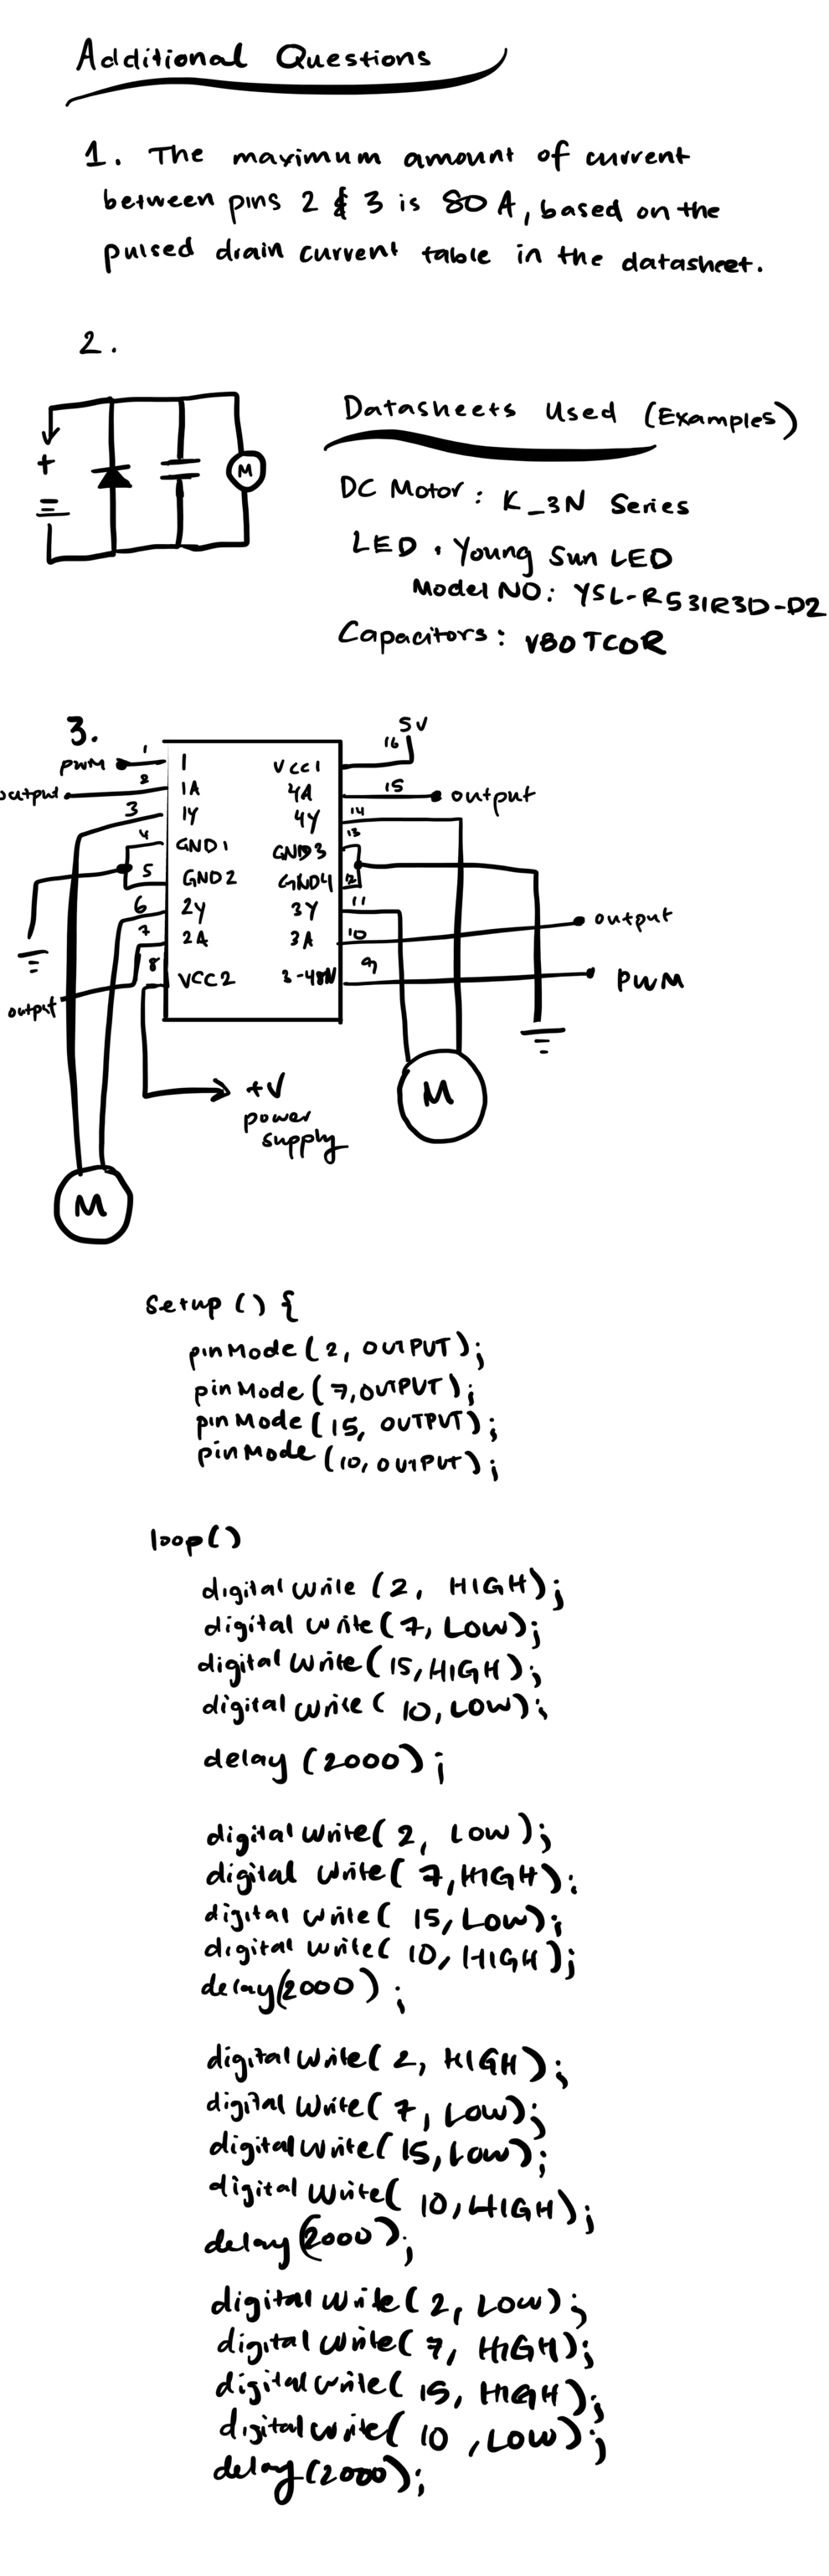 Additional Questions
1. The maximum amount of current
between pins 2 & 3 is 80 A, based on the
pulsed drain current table in the datasheet.
2.
+
M
Datasheets Used (Examples)
DC Motor: K_3N Series
LED. Young Sun LED
Model NO: YSL-R531R3D-D2
Capacitors: VBOTCOR
3.
5V
PWM 1 1 VCC1 16
output 2 1A 4A 15 output
3 1Y 4Y 14
4 GND1 GND3 13
5 GND2 GND4 12
6 2Y 3Y 11
7 2A 3A 10 output
output 8 VCC2 9 PWM
+V
power
supply
M
M
setup () {
pinMode (2, OUTPUT);
pinMode (7, OUTPUT);
pinMode (15, OUTPUT);
pinMode (10, OUTPUT);
loop()
digitalWrite (2, HIGH);
digital Write (7, LOW);
digital Write (15, HIGH);
digital Write ( 10, LOW);
delay (2000);
digital Write( 2, LOW);
digital Write( 7, HIGH);
digital Write( 15, LOW);
digital Write( 10, HIGH);
delay(2000);
digitalWrite( 2, HIGH);
digital Write( 7, LOW);
digitalWrite( 15, LOW);
digital Write( 10, HIGH);
delay(2000);
digitalWrite( 2, LOW);
digitalWrite( 7, HIGH);
digitalWrite( 15, HIGH);
digitalWrite( 10, LOW);
delay(2000);